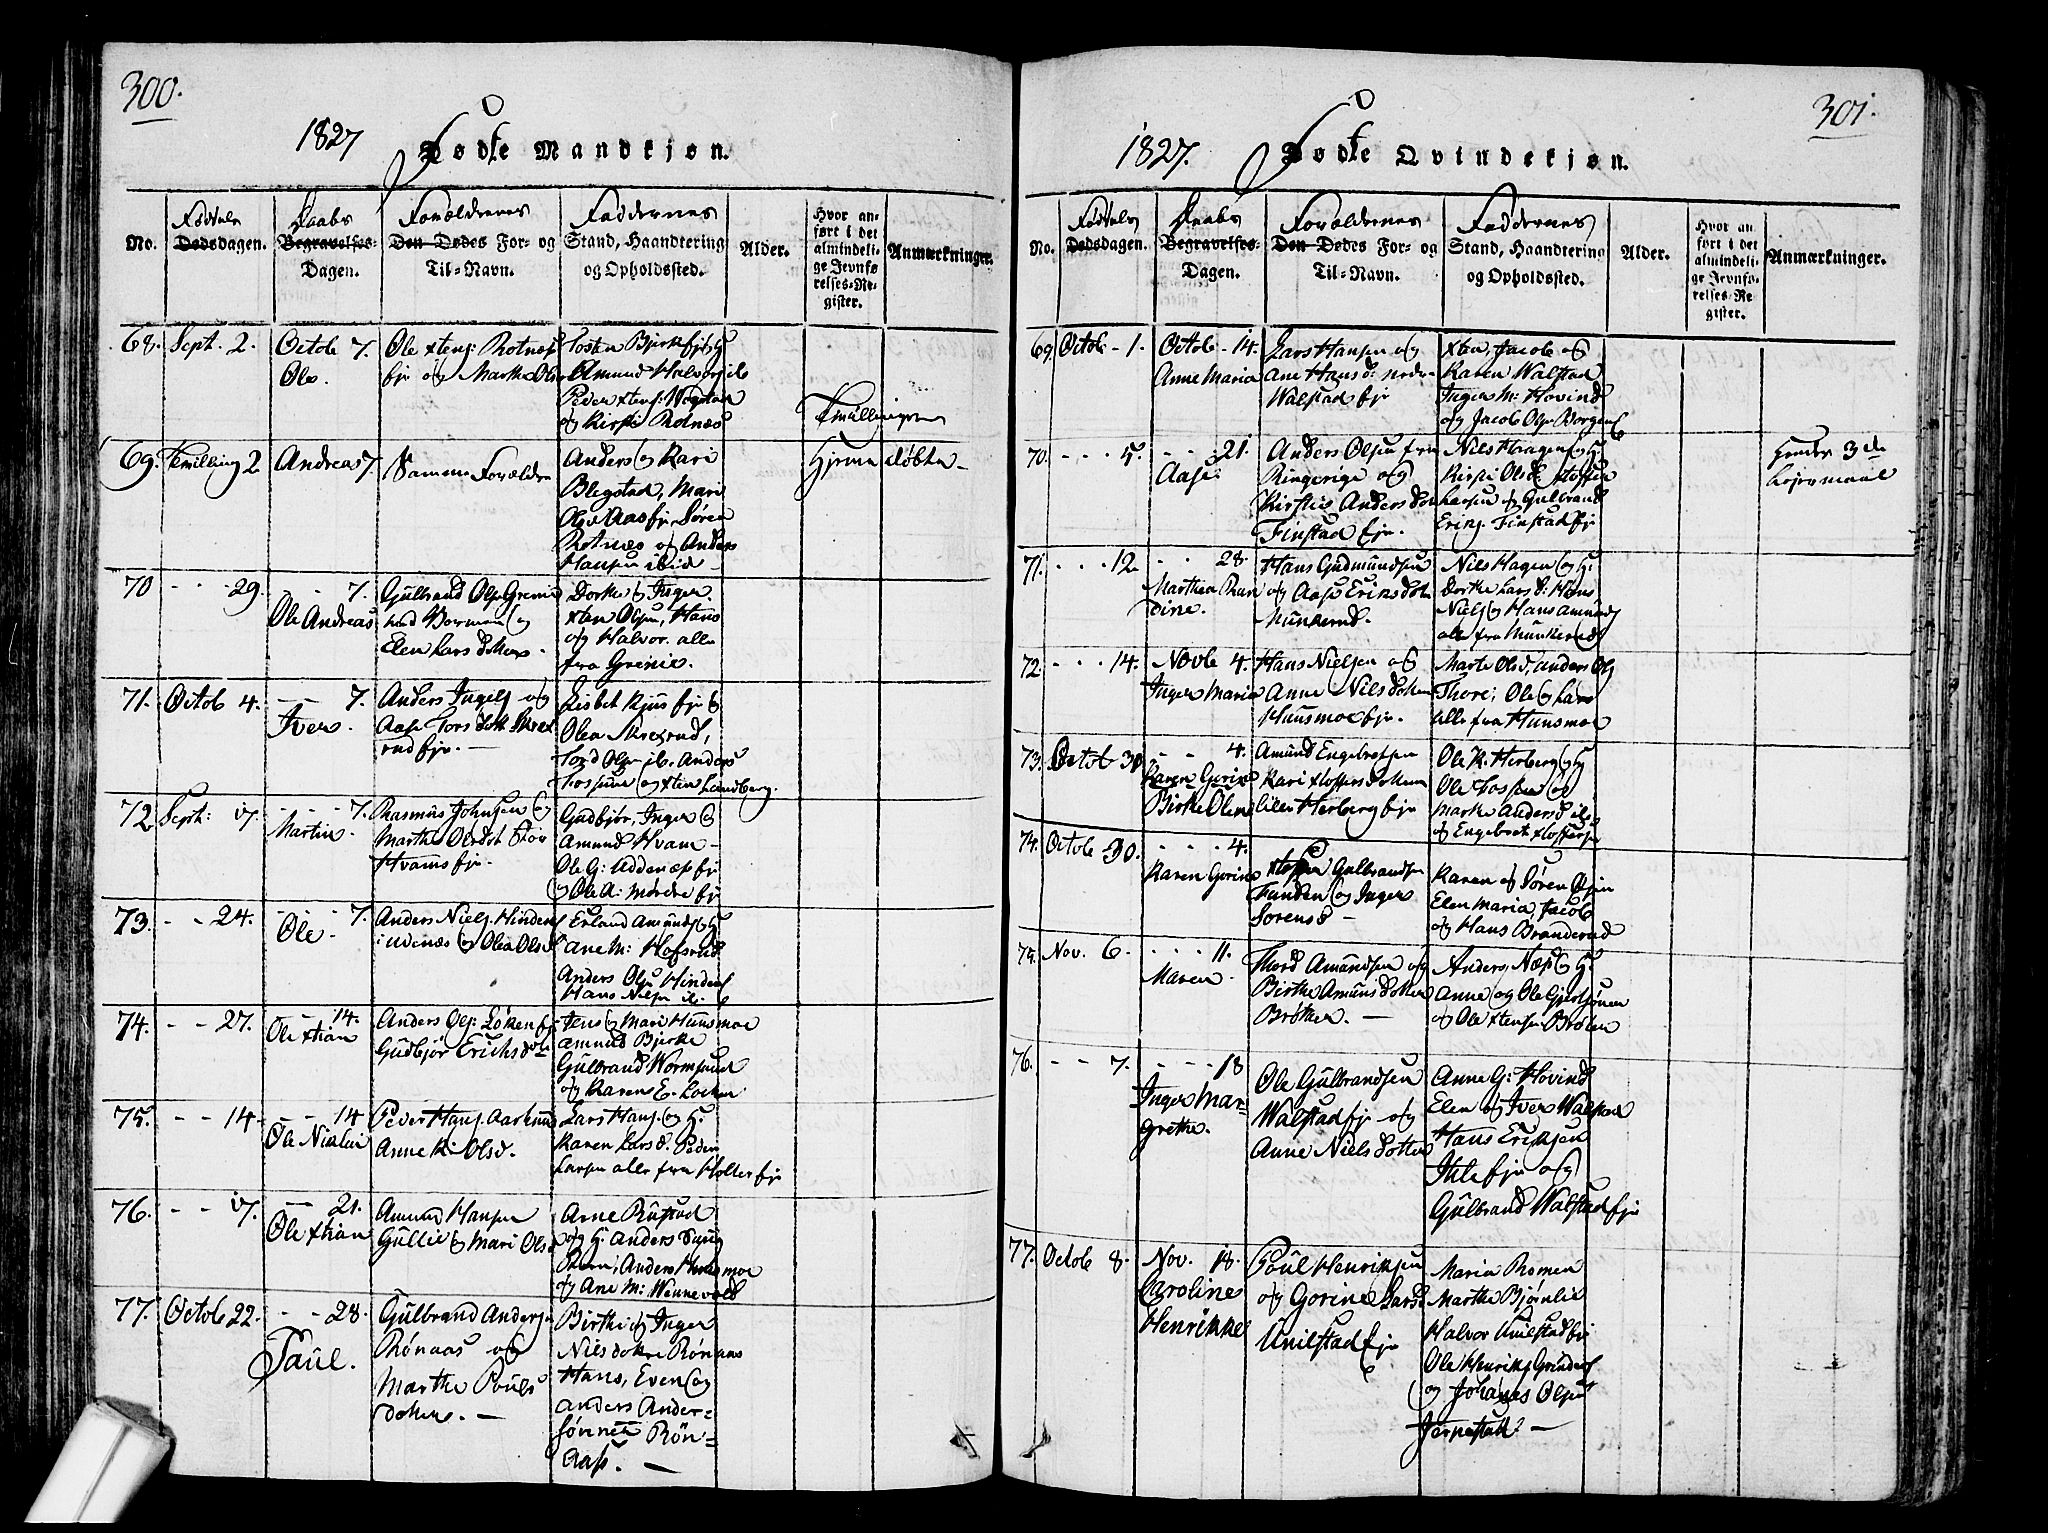 300.
1827 Fødte Mandkjøn.
No.
Fødsels
Dødsdagen.
Daabs
Begravelses-
Dagen.
Forældrenes
Den Dødes For- og
Til-Navn.
Faddernes
Stand, Haandtering
og Opholdssted.
Alder.
Hvor an-
ført i det
almindeli-
ge Jevnfø-
relses-Re-
gister.
Anmærkninger.
68. Sept. 2.
Octob 7.
Ole.
Ole xtens: Rotnæs
eje og Marthe Ols
Tosten Bjerke
Amund Halvors ib
Peder xtens: Wegstad
og Kirsti Rotnæs
Tvillingerne
69. Tvilling 2
Andreas 7.
Samme Forældre
Anders og Kari
Blegstad, Mari
Ols Aas eje Søren
Rotnæs og Anders
Hansen ibid
Hjemmedøbte
70 - - 29.
- - 7.
Ole Andreas
Gulbrand Ols Grenie
ved Vormen og
Elen Lars datter.
Dorthe og Inger.
xten Olsen, Hans
og Halvor. alle
fra Grenie.
71. Octob 4.
- - 7.
Iver.
Anders Ingels og
Aase Tors datt
rud eje.
Lisbet Kjus eje
Olea
Tord Olsen ib. Anders
Fossum og xten Landberg.
72 Sept: 17.
- - - 7.
Martin.
Rasmus Johnsen og
Marthe Olsdat Stor
Hvams eje.
Gudbjør, Inger og
Amund Hvam
Ole G: Uddenæs eje
og Ole A: Mørdre eje
73. - - 24.
- - - 7.
Ole.
Anders Niels. Hinden
i Udenæs og Olea Olsd
Erland Amunds
Ane M: Hofsrud
Anders Ols Hinden
Hans Niels ib.
74. - - 27.
- - 14.
Ole xtian
Anders Ols: Løken eje
Gudbjør Erichsd
Jens og Mari Huusmoe
Amund Bjerke
Gulbrand Wormsund
og Karen E. Løken
75. - - 14.
- - 14
Ole Nicolai
Peder Hans.
Anne K: Olsd.
Lars Hans. og H.
Karen Larsd. Peder
Larsen alle fra Holter eje
76. - - 17.
- - 21.
Ole xtian
Amund Hansen
Gullie og Mari Olsd
Arne Rustad
og H: Anders
Anders Huusmoe
og Ane M: Wennevold
77. Octob 22.
- - 28.
Paul.
Gulbrand Anders
Rønaas og
Marthe Pouls
datter. —
Birthe og Inger
Nils døttre Rønaas
Hans, Even og
Anders Ander-
sønner Røn-
aas. —
301.
1827. Fødte Qvindekjøn.
No.
Fødsels
Dødsdagen.
Daabs
Begravelses-
Dagen.
Forældrenes
Den Dødes For- og
Til-Navn.
Faddernes
Stand, Haandtering
og Opholdssted.
Alder.
Hvor an-
ført i det
almindeli-
ge Jevnfø-
relses-Re-
gister.
Anmærkninger.
69 Octob - 1.
Octob - 14.
Anne Maria
Lars Hansen og
Ane Hansd. nedre
Walstad eje
xten, Jacob og
Karen Walstad
Inger M: Hovind
og Jacob Ols Borgen
70. - - - 5.
- - 21.
Aase.
Anders Olsen fra
Ringerige og
Kirstie Anders dat
Finstad eje.
Nils Hragen og H.
Kirsti Olsd: xtoffer
Larsen og Gulbrand
Erins. Finstad eje
Hendes 3de
Lejermaal
71. - - - 12
- - 28.
Marthea Ran
dine.
Hans Gudmundsen
og Aase Eriksdatt
Munkerud.
Nils Hagen og H:
Dorthe Larsd: Hans
Niels og Hans Amunds
alle fra Munkerud
72. - - - 14.
Novbe 4.
Inger Maria
Hans Nielsen og
Anne Nilsdatter
Huusmoe eje.
Marte Olsd, Anders Ols
Thore, Ole og Lars
alle fra Huusmoe
73. Octob 30
- - 4.
Karen Gorine
Birthe Olene
Amund Engebretsen
Kari xtoffersdatter
lille Herberg eje
Ole K. Herberg og H
Ole Fossum og
Marthe Andersd ib
og Engebret xtoffersen
74. Octob 30.
- - - 4.
Karen Gorine
xtoffer Gulbrandsen
Funden og Inger
Sorensd —
Karen og Søren
Elen Maria, Jacob
og Hans Branderud
75. Nov. 6.
- - - 11.
Maren
Thord Amundsen og
Birthe Amunsdatter
Brøther. —
Anders, Næss og H:
Anne og Ole Gjersjøuen
og Ole xtensen Brøten
76. - - 7.
- - - 18
Inger Mar-
grethe.
Ole Gulbrandsen
Walstad eje og
Anne Nielsdotter
Anne G: Hovind
Elen og Iver Walstad
Hans Eriksen
Ihle eje og
Gulbrand Walstad eje
77. Octob 8.
Nov. 18.
Caroline
Henrikke
Poul Henriksen
og Gorine Larsd
Unilstad eje
Maria Romen
Marthe Bjørnlie
Halvor Unilstad eje
Ole Henriks Grinder
og Johanes Olsen